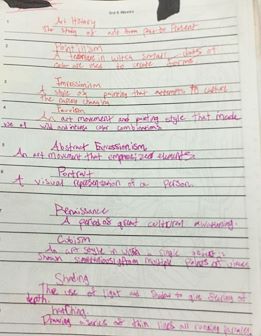 Art History
The story of art from Past to Present
Pointillism
A technique in which small dots of
color are used to create forms.
Impressionism
A style of painting that attempts to capture
the
Fauvism
An art movement and painting style that made
use of wild and color combinations
Abstract Expressionism
An art movement that emphasized elements
Portrait
A visual representation of a person.
Renaissance
A period of great cultural awakening.
Cubism
An art style in which a single object is
shown simultaneously from multiple points of view
Shading
The use of light and shadow to give feeling of
depth.
hatching
Drawing a series of thin lines all running parallel